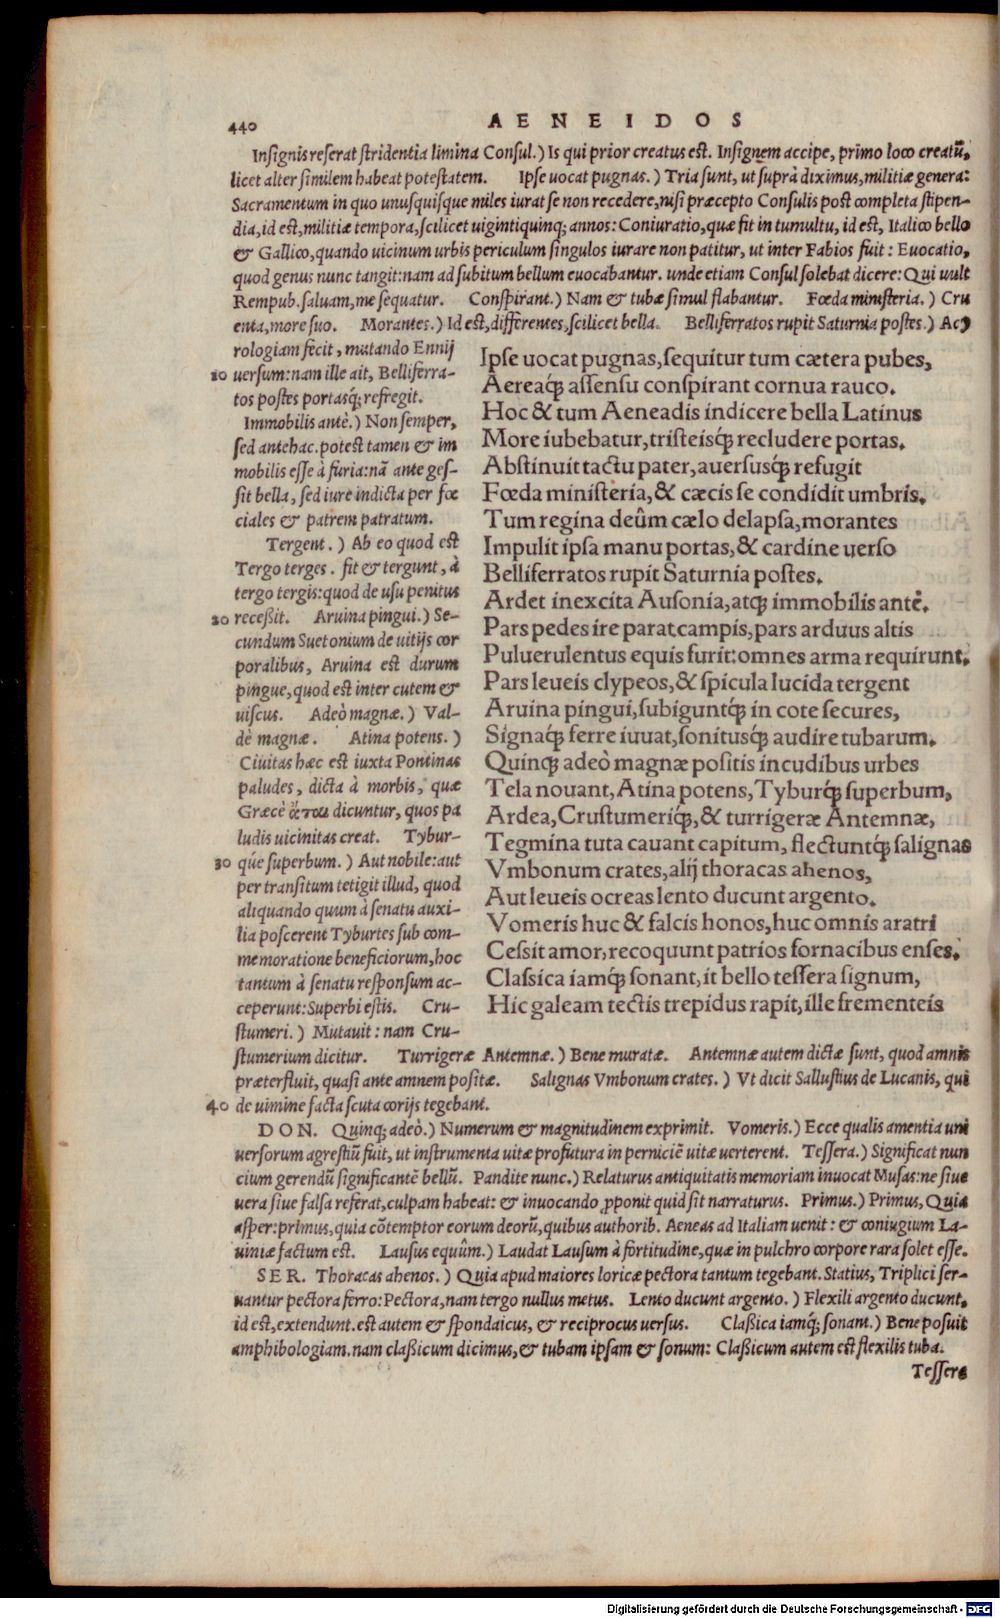 440 AENEIDOS
Insignis reserat stridentia limina Consul.) Is qui prior creatus est. Insignem accipe, primo loco creatū,
licet alter similem habeat potestatem. Ipse uocat pugnas.) Tria sunt, ut suprà diximus, militiæ genera:
Sacramentum in quo unusquisque miles iurat se non recedere, nisi præcepto Consulis post completa stipen-
dia, id est, militiæ tempora, scilicet uigintiquinq; annos: Coniuratio, quæ fit in tumultu, id est, Italico bello
& Gallico, quando uicinum urbis periculum singulos iurare non patitur, ut inter Fabios fuit: Euocatio,
quod genus nunc tangit: nam ad subitum bellum euocabantur. unde etiam Consul solebat dicere: Qui uult
Rempub. saluam, me sequatur. Conspirant.) Nam & tubæ simul flabantur. Fœda ministeria.) Cru
enta, more suo. Morantes.) Id est, differentes, scilicet bella. Belliferratos rupit Saturnia postes.) Acy
rologiam fecit, mutando Ennij
10 uersum: nam ille ait, Belliferra-
tos postes portasq́; refregit.
Immobilis antè.) Non semper,
sed antehac. potest tamen & im
mobilis esse à furia: nā ante ges-
sit bella, sed iure indicta per fœ
ciales & patrem patratum.
Tergent.) Ab eo quod est
Tergo terges. fit & tergunt, à
tergo tergis: quod de usu penitus
20 receßit. Aruina pingui.) Se-
cundum Suetonium de uitijs cor
poralibus, Aruina est durum
pingue, quod est inter cutem &
uiscus. Adeò magnæ.) Val-
dè magnæ. Atina potens.)
Ciuitas hæc est iuxta Pontinas
paludes, dicta à morbis, quæ
Græcè ἄται dicuntur, quos pa
ludis uicinitas creat. Tybur-
30 qúe superbum.) Aut nobile: aut
per transitum tetigit illud, quod
aliquando quum à senatu auxi-
lia poscerent Tyburtes sub com-
memoratione beneficiorum, hoc
tantum à senatu responsum ac-
ceperunt: Superbi estis. Cru-
stumeri.) Mutauit: nam Cru-
Ipse uocat pugnas, sequitur tum cætera pubes,
Aereaq́; assensu conspirant cornua rauco.
Hoc & tum Aeneadis indicere bella Latinus
More iubebatur, tristeisq́; recludere portas.
Abstinuit tactu pater, auersusq́; refugit
Fœda ministeria, & cæcis se condidit umbris.
Tum regina deûm cælo delapsa, morantes
Impulit ipsa manu portas, & cardine uerso
Belliferratos rupit Saturnia postes.
Ardet inexcita Ausonia, atq; immobilis antè.
Pars pedes ire parat campis, pars arduus altis
Puluerulentus equis furit: omnes arma requirunt.
Pars leueis clypeos, & spicula lucida tergent
Aruina pingui, subiguntq́; in cote secures,
Signaq́; ferre iuuat, sonitusq́; audire tubarum.
Quinq; adeò magnæ positis incudibus urbes
Tela nouant, Atina potens, Tyburq́; superbum,
Ardea, Crustumeriq́;, & turrigeræ Antemnæ,
Tegmina tuta cauant capitum, flectuntq́; salignas
Vmbonum crates, alij thoracas ahenos,
Aut leueis ocreas lento ducunt argento.
Vomeris huc & falcis honos, huc omnis aratri
Cessit amor, recoquunt patrios fornacibus enses.
Classica iamq́; sonant, it bello tessera signum,
Hic galeam tectis trepidus rapit, ille frementeis
stumerium dicitur. Turrigeræ Antemnæ.) Bene muratæ. Antemnæ autem dictæ sunt, quod amnis
præterfluit, quasi ante amnem positæ. Salignas Vmbonum crates.) Vt dicit Sallustius de Lucanis, qui
40 de uimine facta scuta corijs tegebant.
DON. Quinq; adeò.) Numerum & magnitudinem exprimit. Vomeris.) Ecce qualis amentia uni
uersorum agrestiū fuit, ut instrumenta uitæ profutura in perniciē uitæ uerterent. Tessera.) Significat nun
cium gerendū significantē bellū. Pandite nunc.) Relaturus antiquitatis memoriam inuocat Musas: ne siue
uera siue falsa referat, culpam habeat: & inuocando ꝓponit quid sit narraturus. Primus.) Primus, Quia
asper: primus, quia cōtemptor eorum deorū, quibus authorib. Aeneas ad Italiam uenit: & coniugium La-
uiniæ factum est. Lausus equûm.) Laudat Lausum à fortitudine, quæ in pulchro corpore rara solet esse.
SER. Thoracas ahenos.) Quia apud maiores loricæ pectora tantum tegebant. Statius, Triplici ser-
uantur pectora ferro: Pectora, nam tergo nullus metus. Lento ducunt argento.) Flexili argento ducunt,
id est, extendunt. est autem & spondaicus, & reciprocus uersus. Claßica iamq́; sonant.) Bene posuit
amphibologiam. nam claßicum dicimus, & tubam ipsam & sonum: Claßicum autem est flexilis tuba.
Tessera
Digitalisierung gefördert durch die Deutsche Forschungsgemeinschaft - DFG